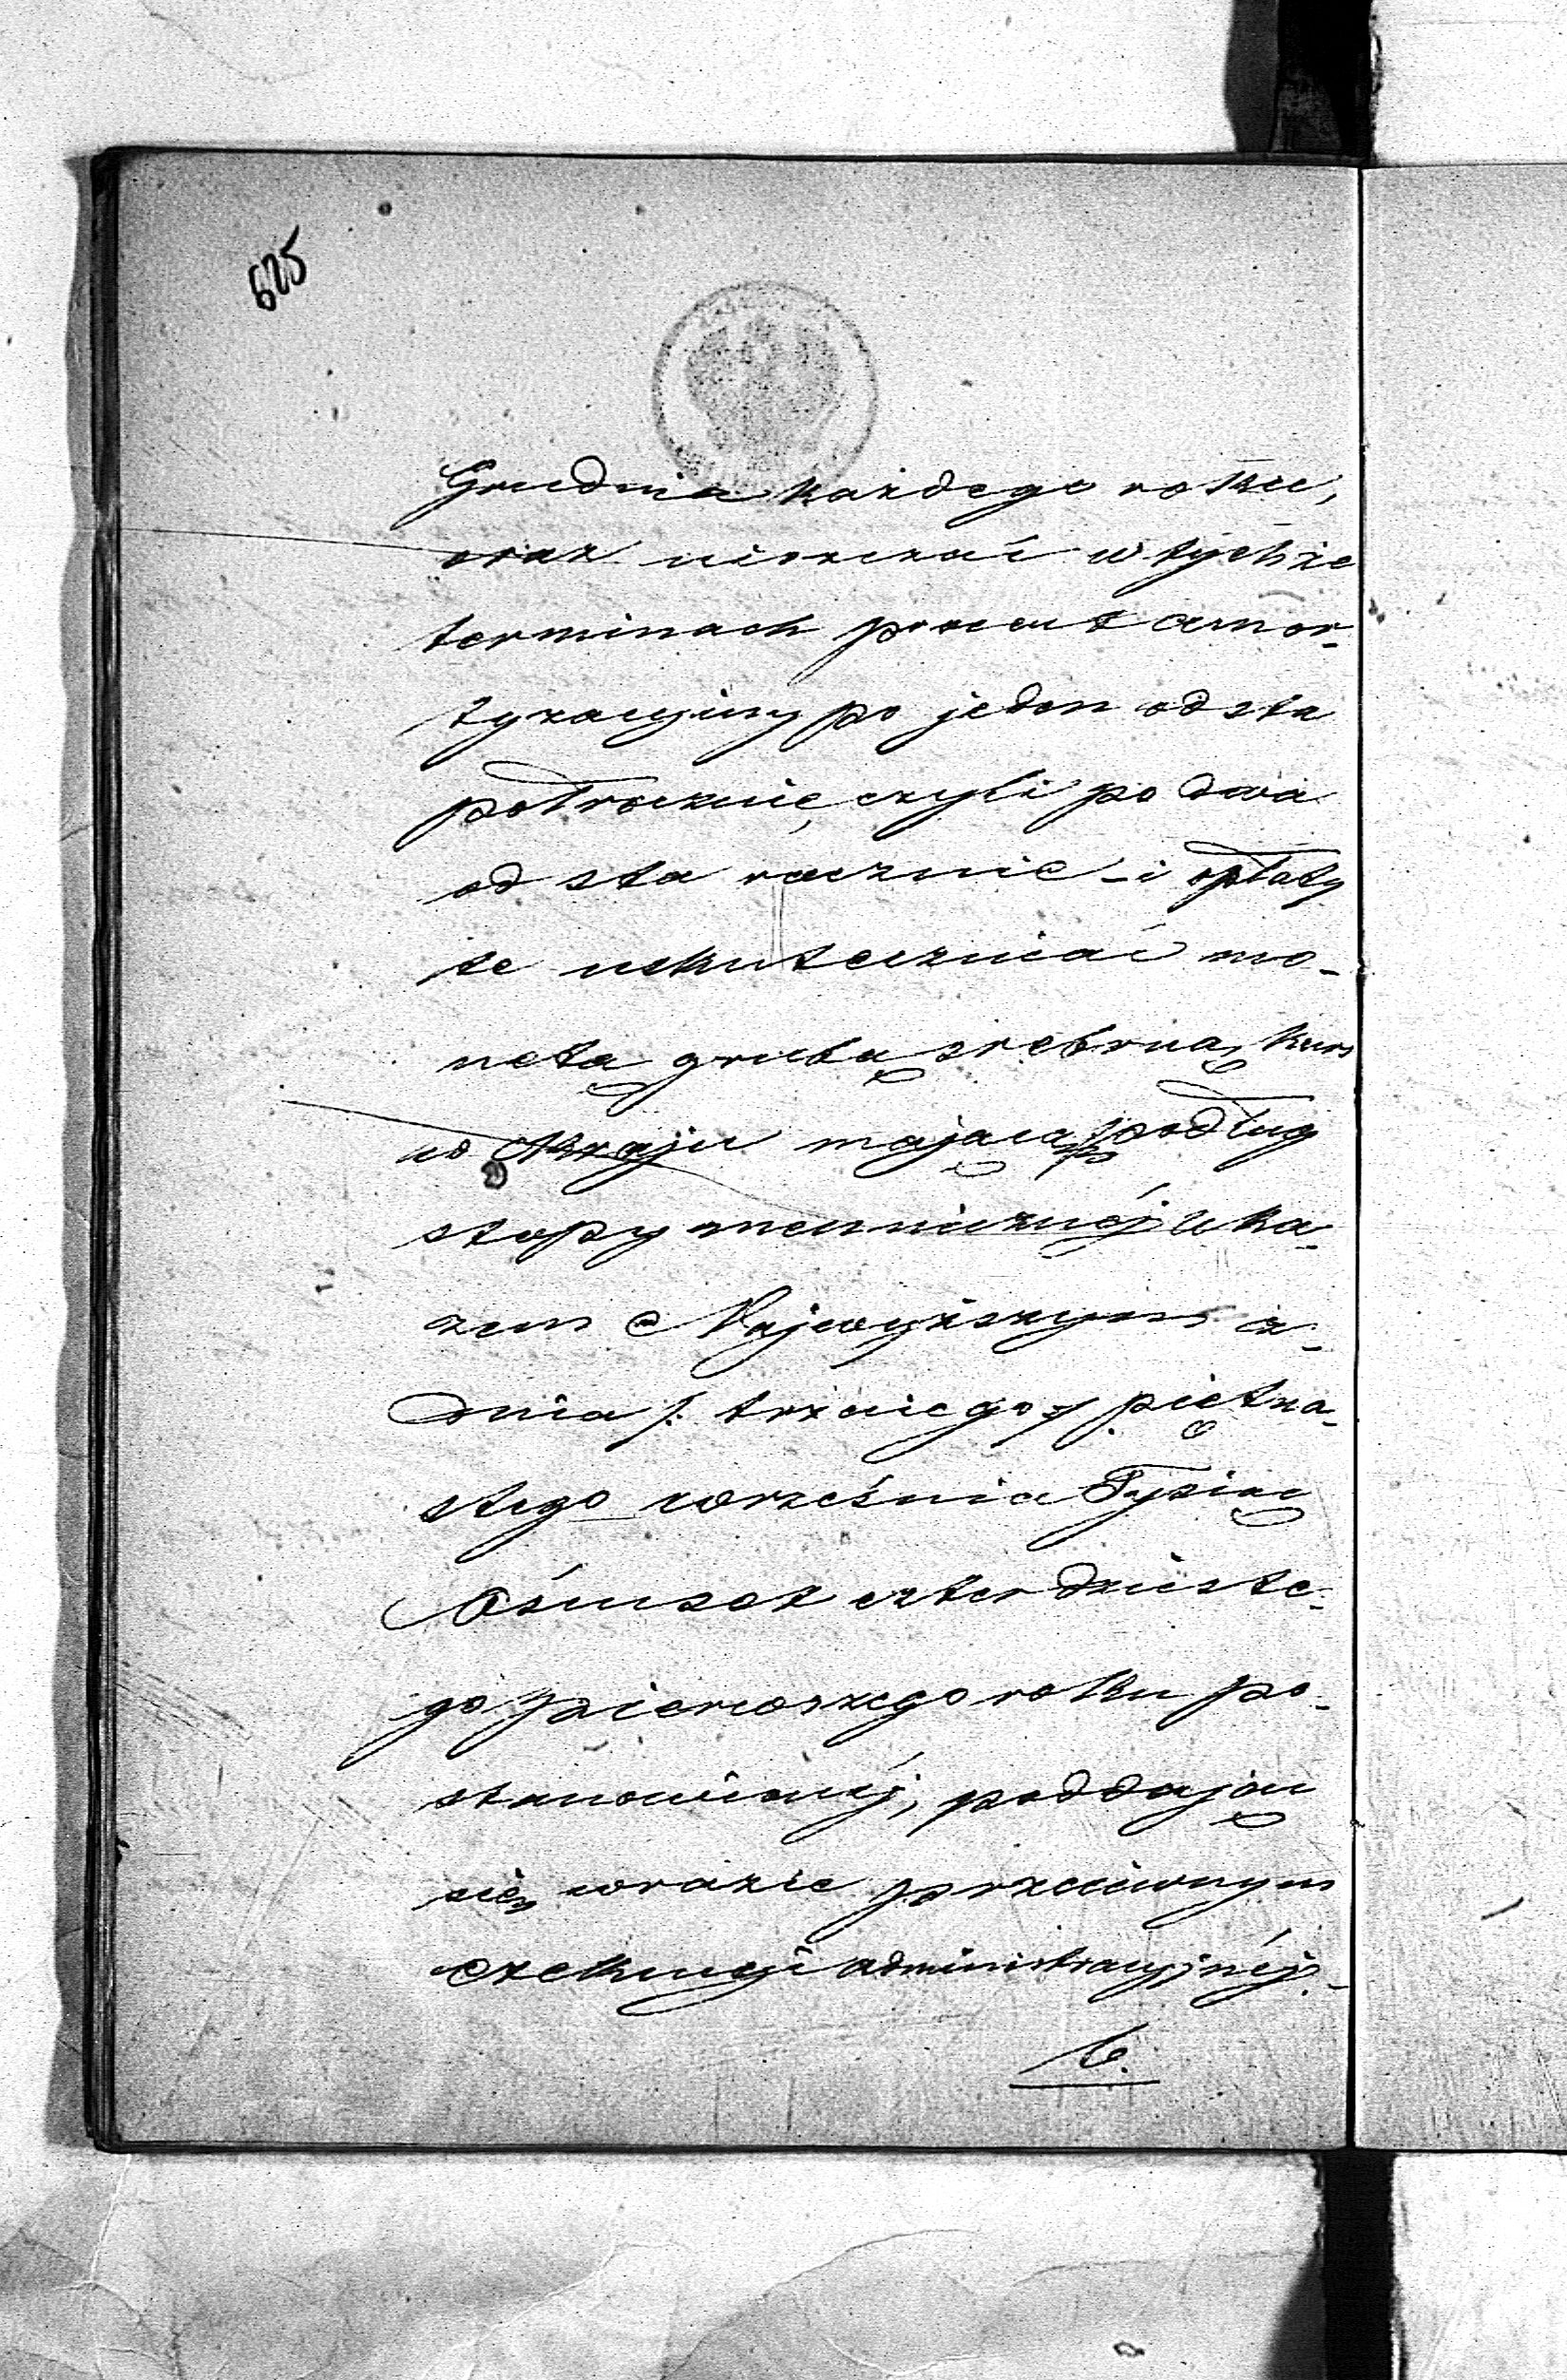 625
Grudnia każdego roku,
oraz uiszczać w tychże
terminach procent amor-
tyzacyjny po jeden od sta
półrocznie, czyli po dwa
od sta rocznie - i opłaty
te uskuteczniać mo-
netą grubą srebrną, kurs
w Kraju mającą podług
stopy mennicznéj uka-
zem Najwyższym z-
dnia /: trzeciego :/ piętna-
stego września Tysiąc
Ośmset czterdzieste-
go pierwszego roku po-
stanowionéj, poddając
się w razie przeciwnym
exekucyi administracyjnéj. -
6.